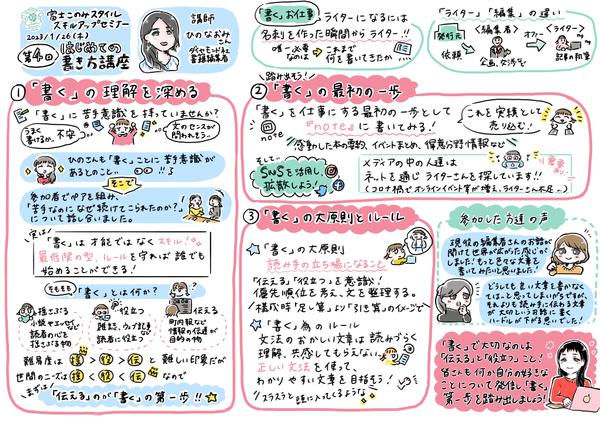 富士このみスタイル
スキルアップセミナー
2023/1/26(木)
第4回
はじめての
書き方講座
講師
ひのなおみ
ダイヤモンド社
書籍編集者
「書く」お仕事
ライターになるには
名刺を作った瞬間からライター!!
唯一必要
なのは
これまで
何を書いてきたか
「ライター」「編集」の違い
発行元
依頼
編集者
企画、交渉 等
オファー
ライター
記事の執筆
①「書く」の理解を深める
「書く」に苦手意識を持っていませんか?
うまく
書けるか、不安
文のセンスが
問われそう…
ひのさんも「書く」ことに苦手意識が
あるとのこと…!!
そこで
参加者でペアを組み、
「苦手なのになぜ続けてこられたのか?」
について話し合いました。
実は
「書く」は才能ではなくスキル!
最低限の型、ルールを守れば誰でも
始めることができる!
そもそも
「書く」とは何か?
揺さぶる
小説やエッセイなど
読者の心を
揺さぶる物
役立つ
雑誌、ウェブ記事など
読者に役立つ
伝える
町内報など
情報の伝達が
目的の物
難易度は 揺 > 役 > 伝 と難しい印象だが
世間のニーズは 揺 < 役 < 伝 なので
まずは
「伝える」のが「書く」の第一歩!!
踏み出そう!
②「書く」の最初の一歩
「書く」を仕事にする最初の一歩として
『note』に書いてみる!
note
これを実績として
売り込む!
感動した本の要約、イベントまとめ、得意分野情報など
そして…
SNSを活用し
拡散しよう!
メディアの中の人達は
ネットを通じライターさんを探しています!!
(コロナ禍でオンラインイベント等が増え、ライターさん不足…)
③「書く」の大原則とルール
「書く」の大原則
読み手の立ち場になること
「伝える」「役立つ」を意識!
優先順位を考え、文を整理する。
構成時「足し算」より「引き算」のイメージで
「書く」為のルール
文法のおかしい文章は読みづらく
理解、共感してもらえない。
正しい文法を使って、
わかりやすい文章を目指そう!
スラスラと頭に入ってくるような
参加した方達の声
現役の編集者さんのお話が
聞けて世界が広がった感じが
しました!もっと色々な文章を
書いてみたいと思いました!
どうしても良い文章を書かなく
てはと思ってしまいがちですが、
それよりも読み手に伝わる文章
が大切というお話に書く
ハードルが下がる思いでした!
「書く」で大切なのは
「伝える」と「役立つ」こと!
皆さんも何か自分の好きな
ことについて発信し、「書く」
第一歩を踏み出しましょう!